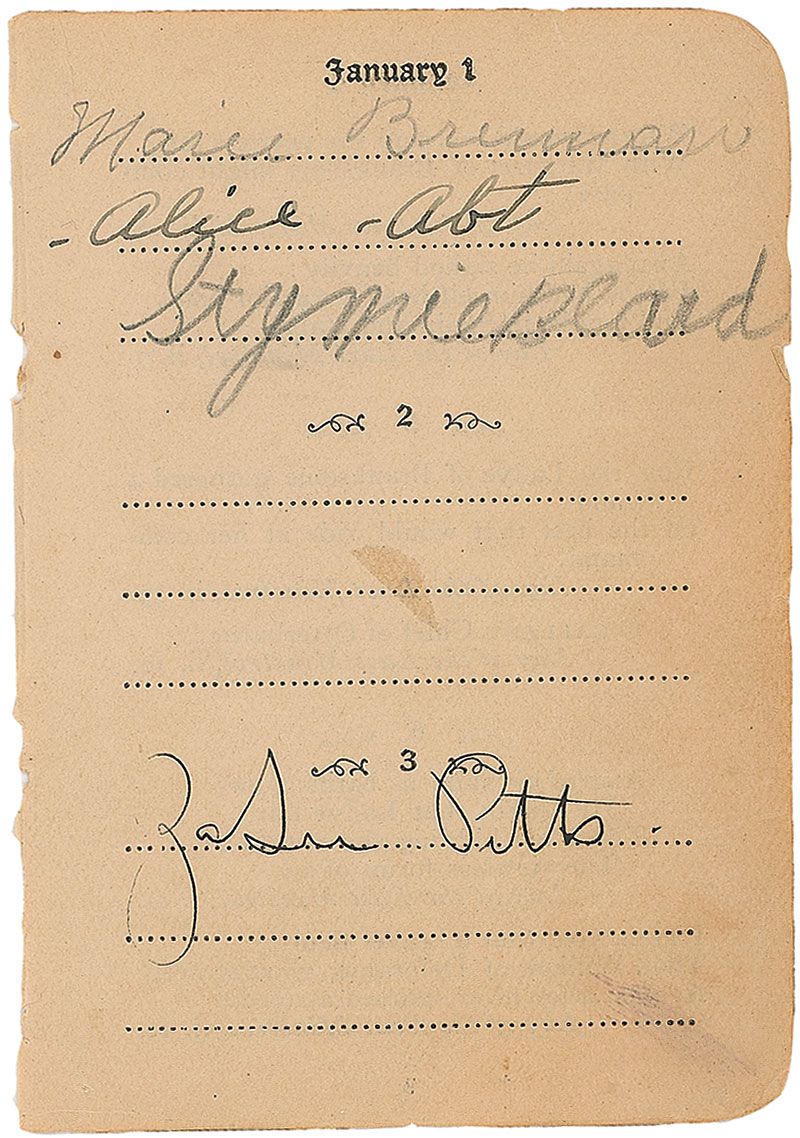 January 1
Marie Brennan
- Alice - Abt
Stymie Beard
2
3
ZaSu Pitts .